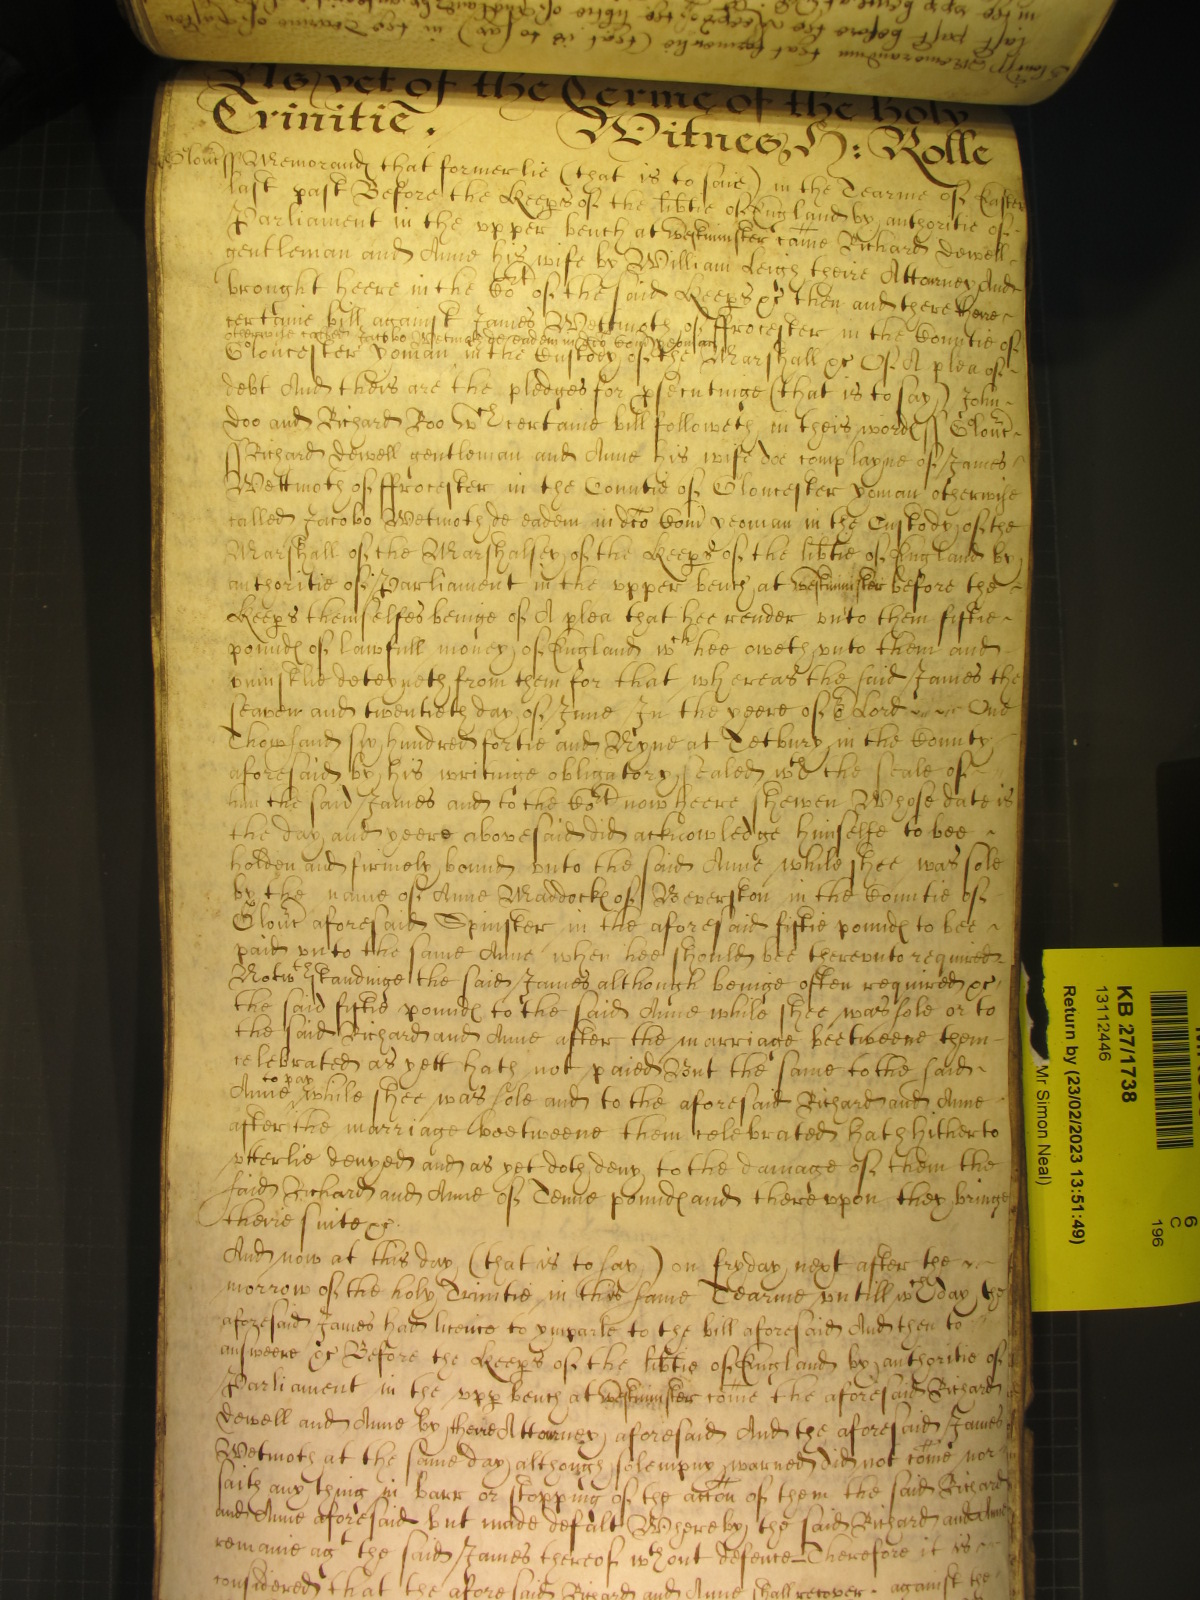 As yet of the Terme of the holy
Trinitie. Witnes H: Rolle
Gloucr ss Memorand that formerlie (that is to saie) in the Tearme of Easter
last past Before the Keeps of the libtie of England by authoritie of
Parliament in the upper bench at Westminster came Richard Dewell
gentleman and Anne his wife by William Leigh theire Attorney And
brought heere in the Cort of the said Keeps &c then and there theire
certaine bill against James Wettmoth of ffrocester in the Countie of
otherwise called Jacobo Wetmoth de eadem in dco Com yeoman
Gloucester yoman in the Custody of the Marshall &c Of A plea of
debt And theis are the pledges for psecutinge (that is to say) John
Doo and Richard Roo Wch certaine bill followeth in theis words ss Gloucr
ss Richard Dewell gentleman and Anne his wife doe complayne of James
Wettmoth of ffrocester in the Countie of Gloucester yoman otherwise
called Jacobo Wetmoth de eadem in dco Com yeoman in the Custody of the
Marshall of the Marshalsey of the Keeps of the libtie of England by
authoritie of Parliament in the upper bench at Westminster before the
Keeps themselfes beinge of A plea that hee render unto them fiftie
pounds of lawfull money of England wch hee oweth unto them and
uniustlie deteyneth from them for that whereas the said James the
seaven and twentieth day of June In the yeere of or Lord One
Thowsand six hundred fortie and Nyne at Tetbury in the County
aforesaid by his writinge obligatory sealed wth the seale of
him the said James and to the Cort now heere shewen Whose date is
the day and yeere abovesaid did acknowledge himselfe to bee
holden and firmely bound unto the said Anne while shee was sole
by the name of Anne Maddocks of Beverston in the Countie of
Gloucr aforesaid Spinster in the aforesaid fiftie pounds to bee
paid unto the same Anne when hee should bee thereunto required
Notwthstandinge the said James although beinge often required &c
the said fiftie pounds to the said Anne while shee was sole or to
the said Richard and Anne after the marriage beetweene them
celebrated as yett hath not paied But the same to the said
to pay
Anne while shee was sole and to the aforesaid Richard and Anne
after the marriage beetweene them celebrated hath hitherto
utterlie denyed and as yet doth deny to the damage of them the
said Richard and Anne of Tenne pounds and thereupon they bringe
theire suite &c.
And now at this day (that is to say) on fryday next after the
morrow of the holy Trinitie in this same Tearme untill wch day the
aforesaid James had licence to ymparle to the bill aforesaid And then to
answeere &c Before the Keeps of the libtie of England by authoritie of
Parliament in the upp bench at Westminster come the aforesaid Richard
Dewell and Anne by theire Attorney aforesaid And the aforesaid James
Wetmoth at the same day although solempny warned did not come nor
saith any thing in barr or stopping of the accon of them the said Richard
and Anne aforesaid but made defalt Whereby the said Richard and Anne
remaine agt the said James thereof wthout defence Therefore it is
considered that the aforesaid Richard and Anne shall recover against the
KB 27/1738
13112446
Return by (23/02/2023 13:51:49)
Mr Simon Neal)
6
C
196